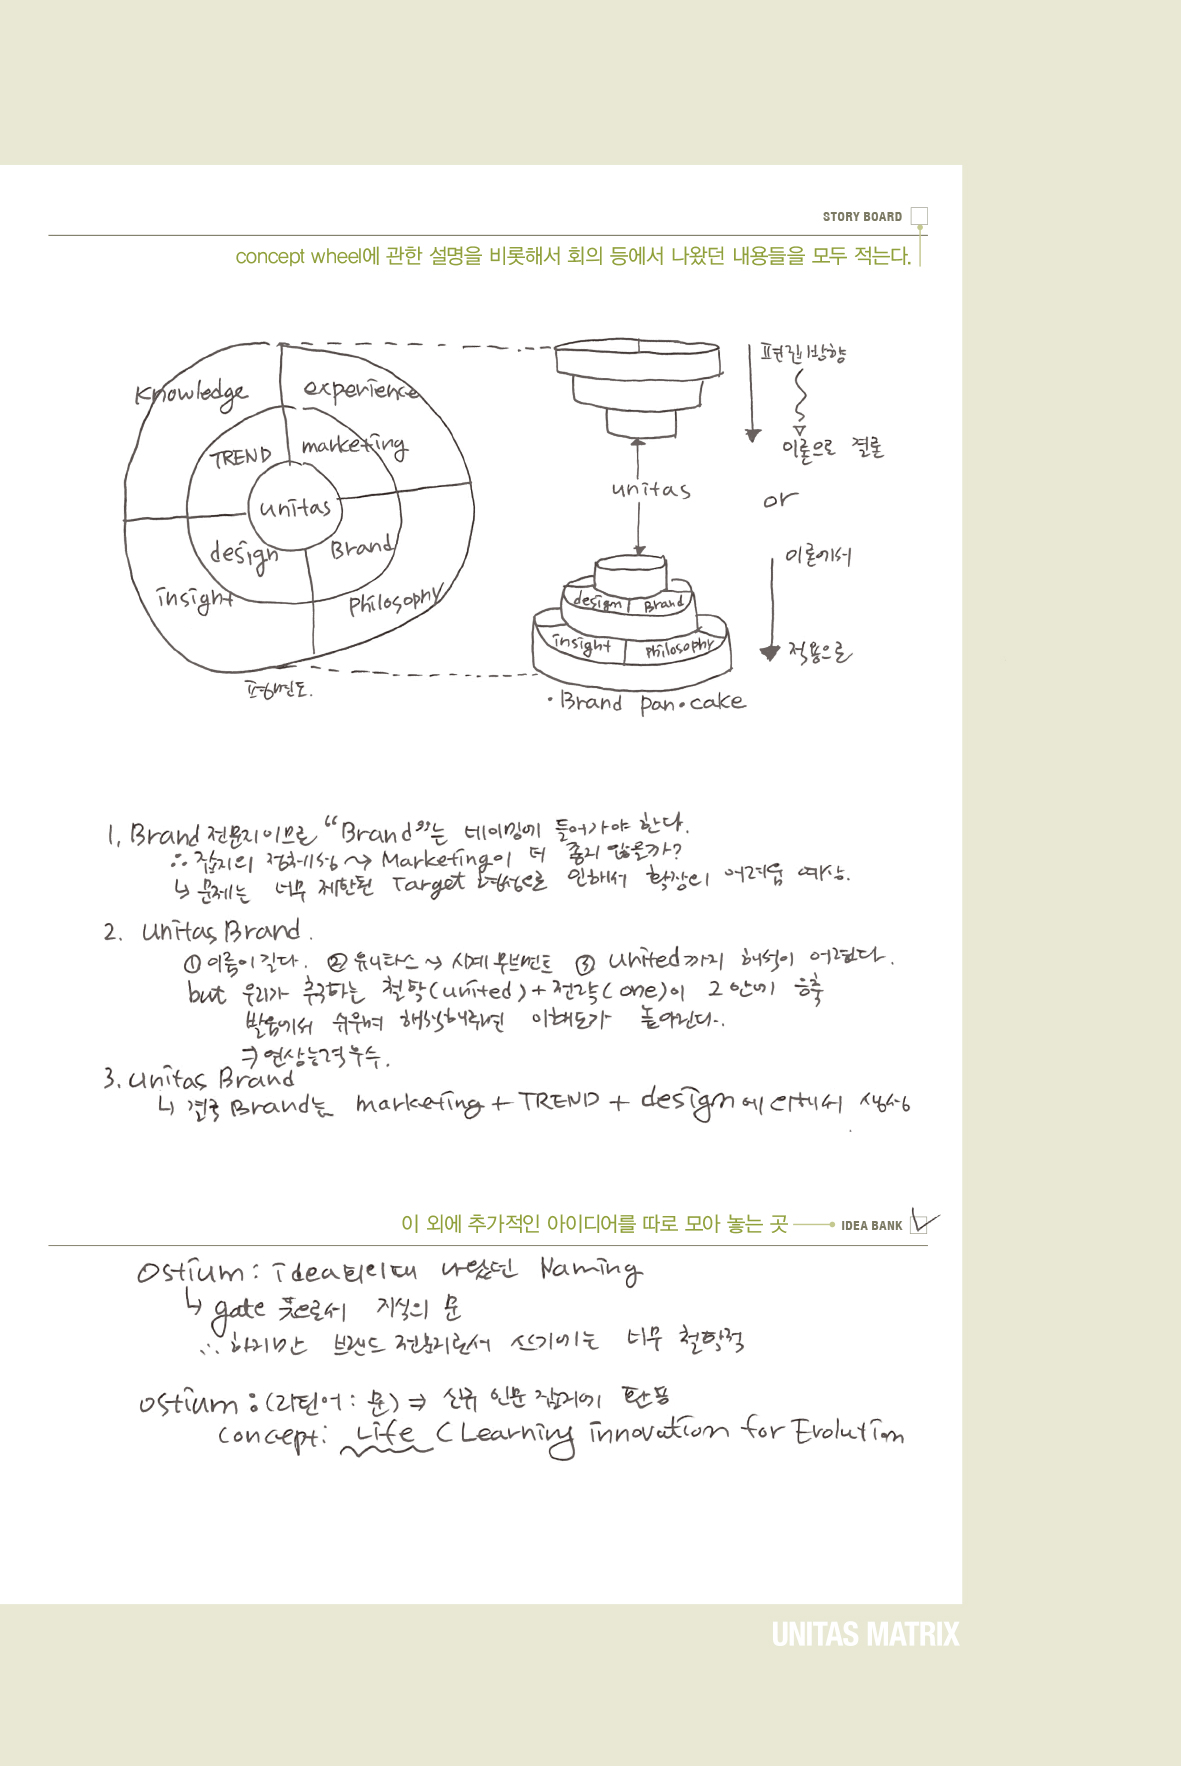 STORY BOARD
concept wheel에 관한 설명을 비롯해서 회의 등에서 나왔던 내용들을 모두 적는다.
Knowledge experience
TREND marketing
unitas
design Brand
insight Philosophy
평면도.
편집방향
이론으로 결론
unitas
or
이론에서
적용으로
design Brand
insight Philosophy
· Brand pan · cake
1, Brand 전문지이므로 “Brand”는 네이밍에 들어가야 한다.
∴ 잡지의 정체성 → Marketing이 더 좋지 않을까?
↳ 문제는 너무 제한된 Target 형성으로 인해서 확장의 어려움 예상.
2. unitas Brand.
① 이름이 길다. ② 유니타스 → 시계 무브먼트 ③ united까지 해석이 어렵다.
but 우리가 추구하는 철학(united)+전략(one)이 2 안에 응축
발음에서 쉬우며 해석해주면 이해도가 높아진다.
⇒ 연상능력우수.
3. unitas Brand
↳ 결국 Brand는 marketing + TREND + design에 의해서 생성
이 외에 추가적인 아이디어를 따로 모아 놓는 곳
IDEA BANK
Ostium : Idea회의때 나왔던 Naming
↳ gate 뜻으로서 지식의 문
∴ 하지만 브랜드 전문지로서 쓰기에는 너무 철학적
Ostium : (라틴어 : 문) ⇒ 신규 인문 잡지에 활용
concept : Life ( Learning innovation for Evolution
UNITAS MATRIX